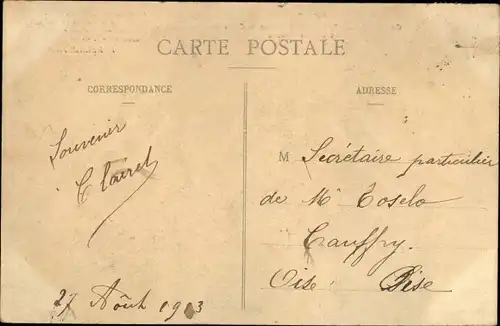 CARTE POSTALE
CORRESPONDANCE
ADRESSE
Souvenir
27 Août 1913
M Secrétaire particulier
de Mr Toselo
Cauffry.
Oise. Oise